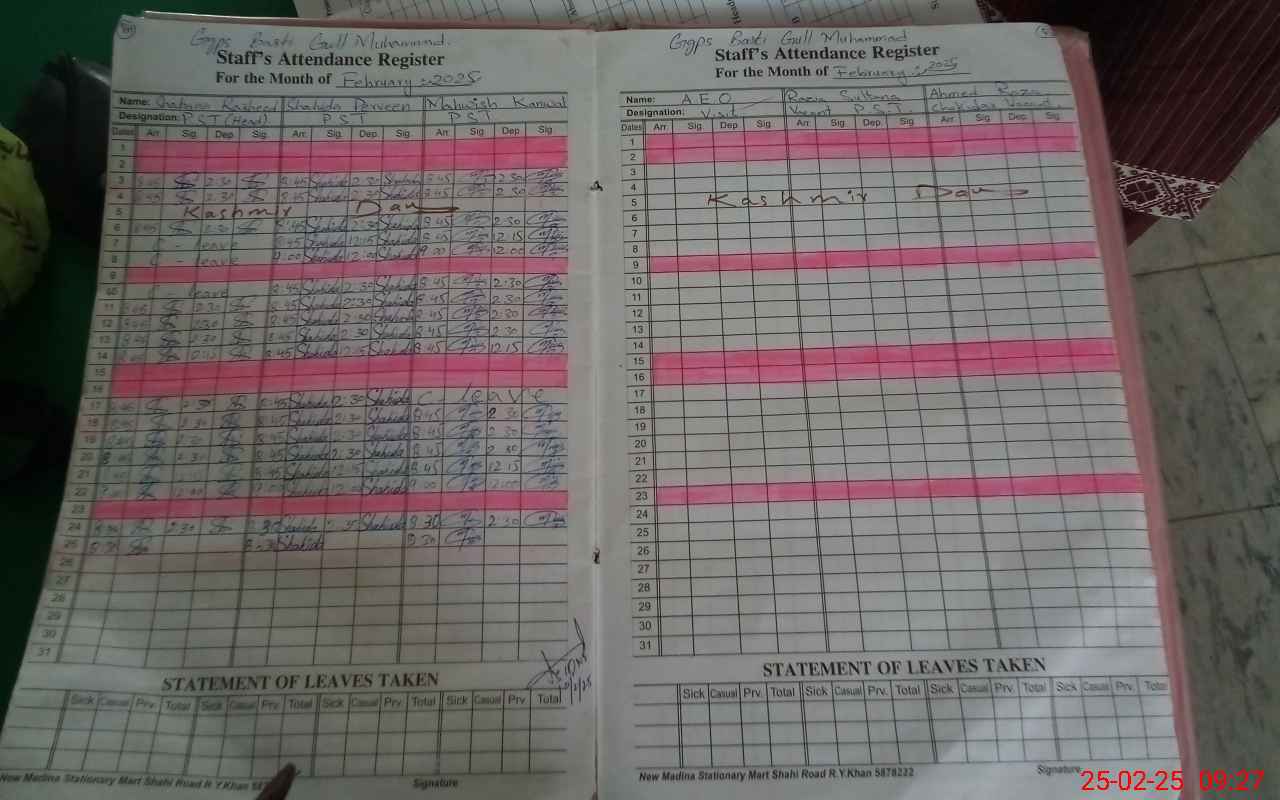 Ggps Basti Gull Muhammad.
Staff's Attendance Register
For the Month of February :- 2025
Name: Shabana Rasheed Shahida Perveen Mahwish Kanwal
Designation: P.S.T (Head) P S T P S T
Dates Arr. Sig. Dep Sig. Arr. Sig. Dep. Sig. Arr. Sig. Dep. Sig.
1
2
3 8:45 2:30 8:45 Shahida 2:30 Shahida 8:45 2:30
4 8:45 2:30 8:45 Shahida 2:30 Shahida 8:45 2:30
5 Kashmir Day
6 8:45 2:30 8:45 Shahida 2:30 Shahida 8:45 2:30
7 C - leave 8:45 Shahida 12:15 Shahida 8:45 12:15
8 C - leave 9:00 Shahida 12:00 Shahida 9:00 12:00
9
10 C - leave 8:45 Shahida 2:30 Shahida 8:45 2:30
11 8:45 2:30 8:45 Shahida 2:30 Shahida 8:45 2:30
12 8:45 2:30 8:45 Shahida 2:30 Shahida 8:45 2:30
13 8:45 2:30 8:45 Shahida 2:30 Shahida 8:45 2:30
14 8:45 12:15 8:45 Shahida 12:15 Shahida 8:45 12:15
15
16
17 8:45 2:30 8:45 Shahida 2:30 Shahida C - leave
18 8:45 2:30 8:45 Shahida 2:30 Shahida 8:45 2 30
19 8:45 2:30 8:45 Shahida 2:30 Shahida 8:45 2 30
20 8:45 2:30 8:45 Shahida 2:30 Shahida 8:45 2 30
21 8:45 Shahida 12:15 Shahida 8:45 12 15
22 12:00 9:00 Shahida 12:00 Shahida 9:00 12:00
23
24 8:30 2:30 8:30 Shahida Shahida 8 30 2 30
25 8:30 8:30 Shahida 8 30
26
27
28
29
30
31
STATEMENT OF LEAVES TAKEN
Sick Casual Prv. Total Sick Casual Prv. Total Sick Casual Prv. Total Sick Casual Prv. Total
New Madina Stationary Mart Shahi Road R.Y.Khan 587
Signature
Ggps Basti Gull Muhammad
Staff's Attendance Register
For the Month of February :- 2025
Name: A.E.O Razia Sultana Ahmed Raza
Designation: Visit P.S.T. Chokidar
Dates Arr. Sig. Dep. Sig. Arr. Sig. Dep. Sig. Arr. Sig. Dep. Sig.
1
2
3
4
5 Kashmir Day
6
7
8
9
10
11
12
13
14
15
16
17
18
19
20
21
22
23
24
25
26
27
28
29
30
31
STATEMENT OF LEAVES TAKEN
Sick Casual Prv. Total Sick Casual Prv. Total Sick Casual Prv. Total Sick Casual Prv. Total
New Madina Stationary Mart Shahi Road R.Y.Khan 5878222
Signature
25-02-25 09:27